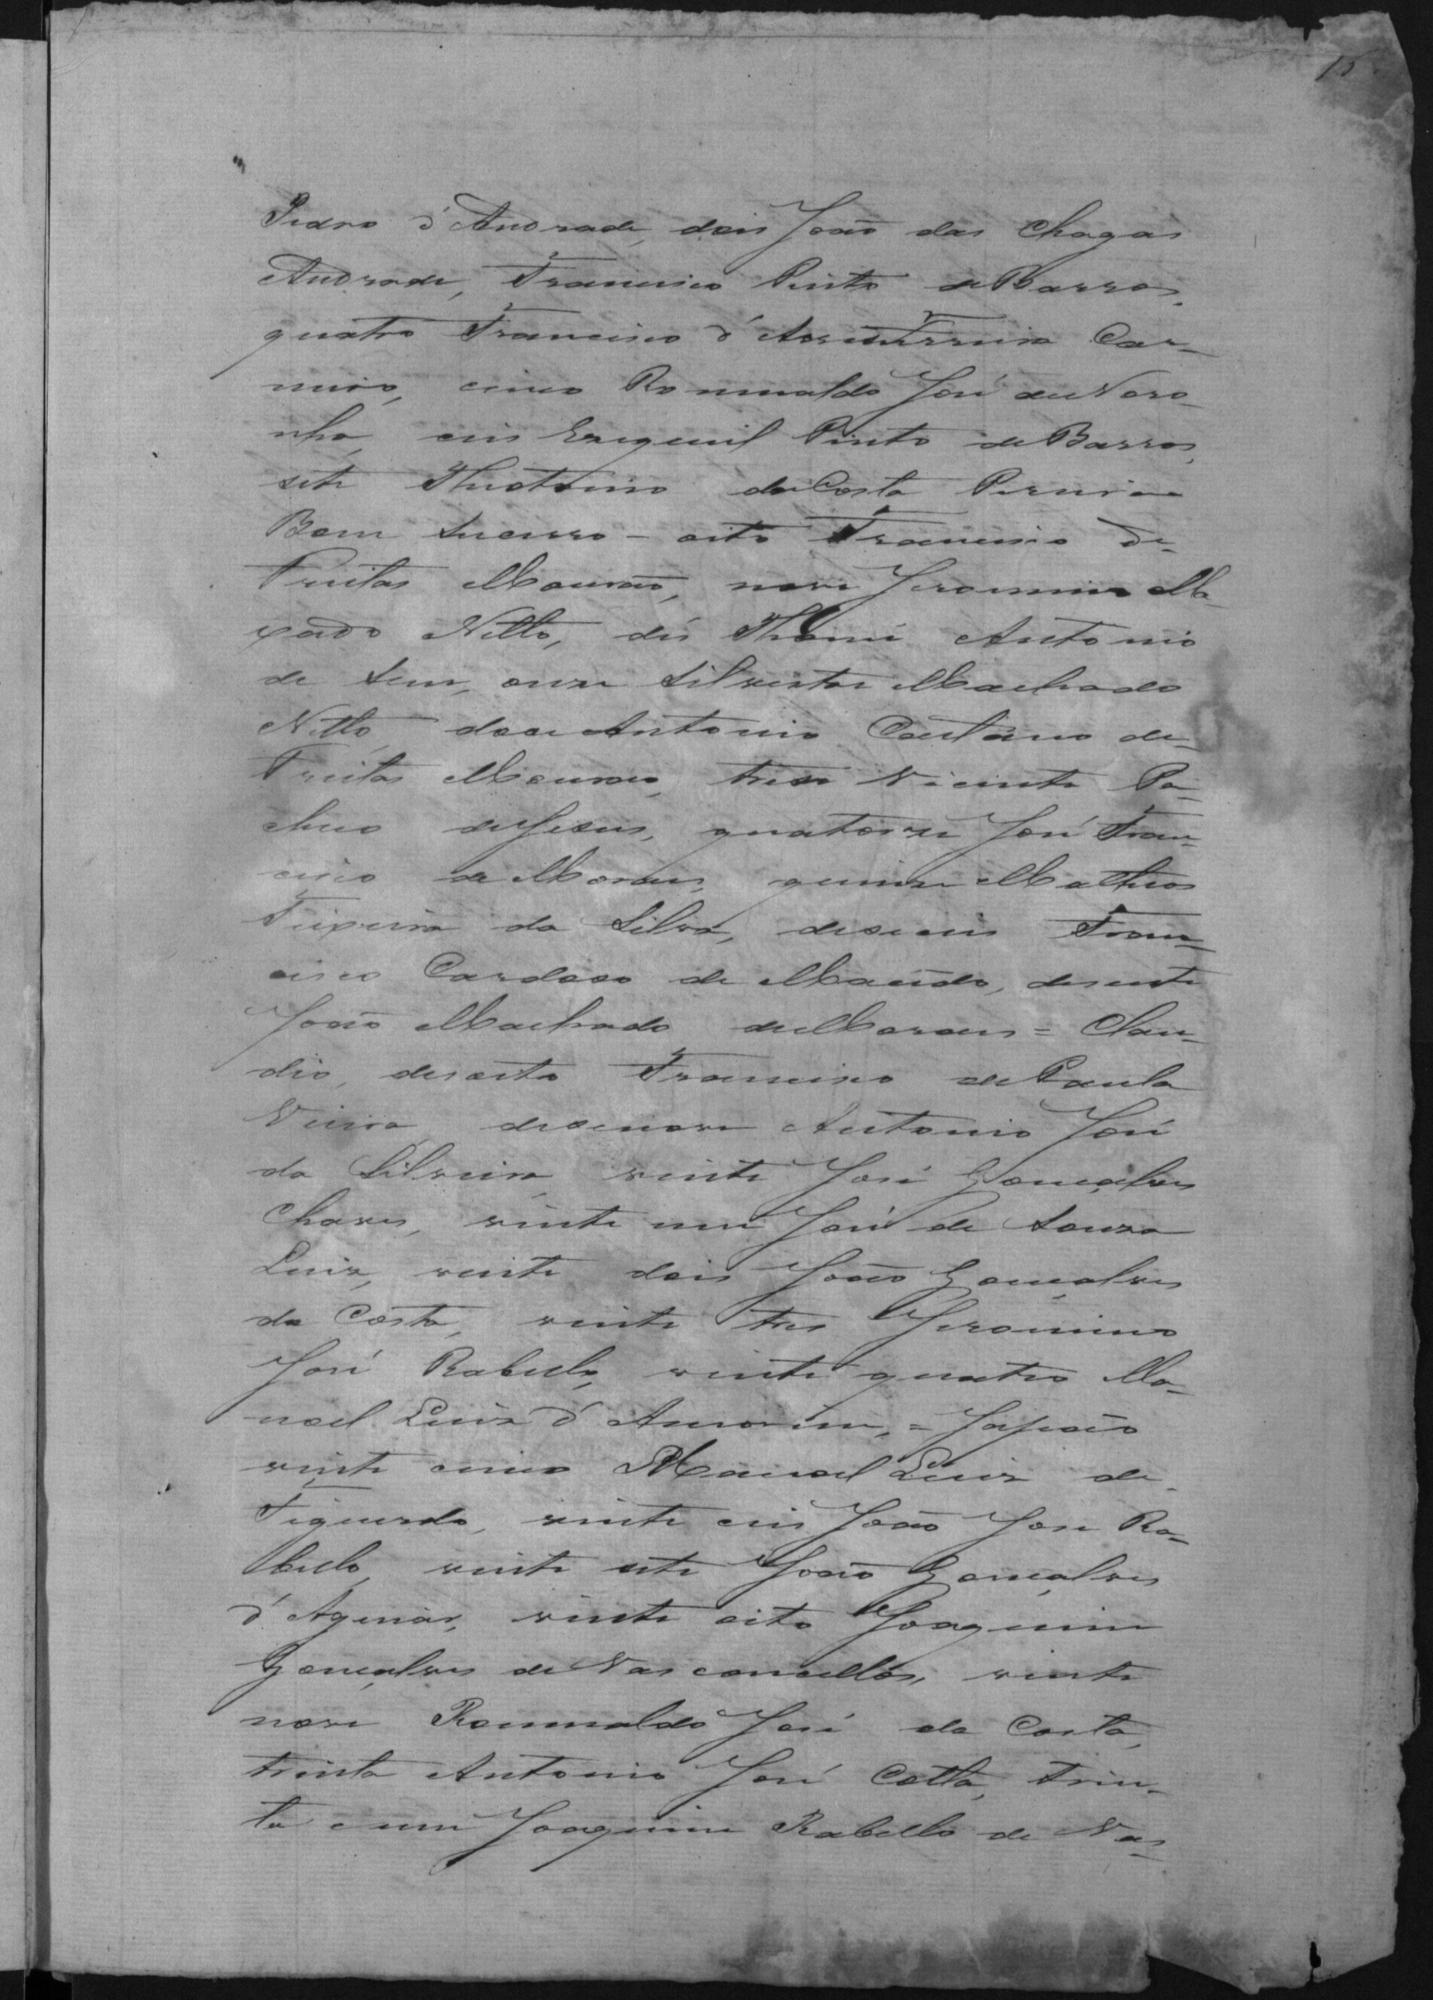 15
Pedro d'Andrade, dois João das Chagas
Andrade, Francisco Pinto de Barros,
quatro Francisco d' Car-
neiro, cinco Romualdo José de Noro-
nha, seis Ezequiel Pinto de Barros,
sete Theotonio da Costa Pereira
Bom Sucesso - oito Francisco de
Freitas Mourão, nove Jeronimo Ma-
xado Netto, dés Thomé Antonio
de Sene, onze Silvestre Machado
Netto, doze Antonio Caetano de
Freitas Mourão, treze Vicente Pa-
checo de Jesus, quatorze José Fran-
cisco de Moraes, quinze Matheos
Teixeira da Silva, deseseis Fran-
cisco Cardoso de Macêdo, desesete
João Machado de Moraes = Clau-
dio, desoito Francisco de Paula
Vieira, desenove Antonio José
da Silveira, vinte José Gonçalves
Chaves, vinte um José de Souza
Luiz, vinte dois João Gonçalves
da Costa, vinte tres Jeronimo
José Rabello, vinte quatro Ma-
noel Luiz d'Amorim, = Japão
vinte cinco Manoel Luiz de
Figueredo, vinte seis João José Ra-
bello, vinte sete João Gonçalves
d'Aguiar, vinte oito Joaquim
Gonçalves de Vasconcellos, vinte
nove Romualdo José da Costa,
trinta Antonio José Cotta, trin-
ta e um Joaquim Rabello de Vas-